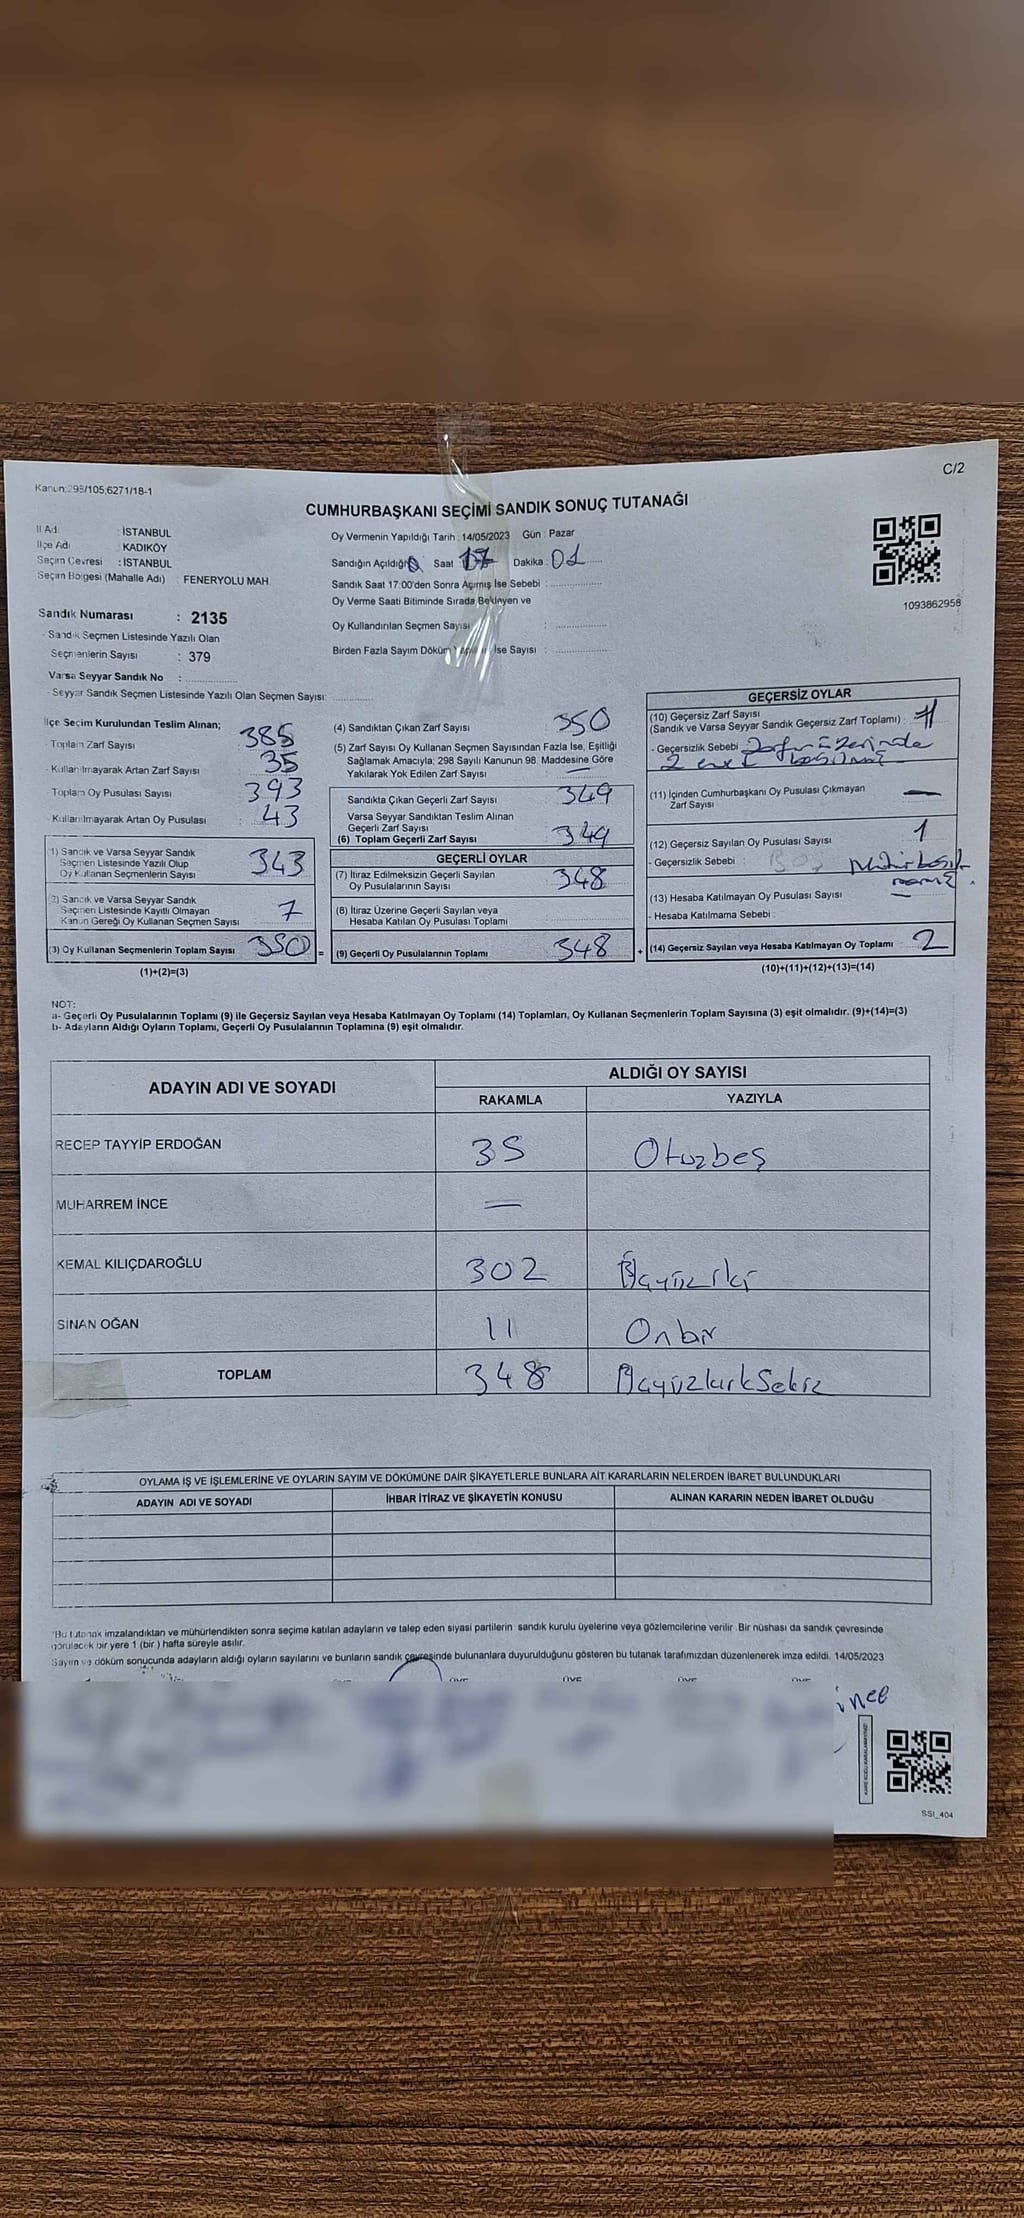 C/2
Kanun:298/105,6271/18-1
CUMHURBAŞKANI SEÇİMİ SANDIK SONUÇ TUTANAĞI
İl Adı : İSTANBUL
İlçe Adı : KADIKÖY
Seçim Çevresi : İSTANBUL
Seçim Bölgesi (Mahalle Adı) : FENERYOLU MAH.
Sandık Numarası : 2135
- Sandık Seçmen Listesinde Yazılı Olan
Seçmenlerin Sayısı : 379
Varsa Seyyar Sandık No :
- Seyyar Sandık Seçmen Listesinde Yazılı Olan Seçmen Sayısı:
Oy Vermenin Yapıldığı Tarih : 14/05/2023 Gün : Pazar
Sandığın Açıldığı Saat 17 Dakika : 01
Sandık Saat 17.00'den Sonra Açılmış İse Sebebi :
Oy Verme Saati Bitiminde Sırada Bekleyen ve
Oy Kullandırılan Seçmen Sayısı :
Birden Fazla Sayım Döküm İse Sayısı :
1093862958
İlçe Seçim Kurulundan Teslim Alınan;
- Toplam Zarf Sayısı : 385
- Kullanılmayarak Artan Zarf Sayısı : 35
Toplam Oy Pusulası Sayısı : 393
- Kullanılmayarak Artan Oy Pusulası : 43
1) Sandık ve Varsa Seyyar Sandık
Seçmen Listesinde Yazılı Olup
Oy Kullanan Seçmenlerin Sayısı 343
2) Sandık ve Varsa Seyyar Sandık
Seçmen Listesinde Kayıtlı Olmayan
Kanun Gereği Oy Kullanan Seçmen Sayısı 7
(3) Oy Kullanan Seçmenlerin Toplam Sayısı 350 =
(1)+(2)=(3)
(4) Sandıktan Çıkan Zarf Sayısı 350
(5) Zarf Sayısı Oy Kullanan Seçmen Sayısından Fazla İse, Eşitliği
Sağlamak Amacıyla, 298 Sayılı Kanunun 98. Maddesine Göre
Yakılarak Yok Edilen Zarf Sayısı : —
Sandıkta Çıkan Geçerli Zarf Sayısı 349
Varsa Seyyar Sandıktan Teslim Alınan
Geçerli Zarf Sayısı
(6) Toplam Geçerli Zarf Sayısı 349
GEÇERLİ OYLAR
(7) İtiraz Edilmeksizin Geçerli Sayılan
Oy Pusulalarının Sayısı 348
(8) İtiraz Üzerine Geçerli Sayılan veya
Hesaba Katılan Oy Pusulası Toplamı
(9) Geçerli Oy Pusulalarının Toplamı 348 +
GEÇERSİZ OYLAR
(10) Geçersiz Zarf Sayısı
(Sandık ve Varsa Seyyar Sandık Geçersiz Zarf Toplamı) : 1
- Geçersizlik Sebebi Zarfın üzerinde
2
(11) İçinden Cumhurbaşkanı Oy Pusulası Çıkmayan
Zarf Sayısı —
(12) Geçersiz Sayılan Oy Pusulası Sayısı 1
- Geçersizlik Sebebi :
(13) Hesaba Katılmayan Oy Pusulası Sayısı —
- Hesaba Katılmama Sebebi :
(14) Geçersiz Sayılan veya Hesaba Katılmayan Oy Toplamı 2
(10)+(11)+(12)+(13)=(14)
NOT:
a- Geçerli Oy Pusulalarının Toplamı (9) ile Geçersiz Sayılan veya Hesaba Katılmayan Oy Toplamı (14) Toplamları, Oy Kullanan Seçmenlerin Toplam Sayısına (3) eşit olmalıdır. (9)+(14)=(3)
b- Adayların Aldığı Oyların Toplamı, Geçerli Oy Pusulalarının Toplamına (9) eşit olmalıdır.
ADAYIN ADI VE SOYADI ALDIĞI OY SAYISI
RAKAMLA YAZIYLA
RECEP TAYYİP ERDOĞAN 35 Otuzbeş
MUHARREM İNCE —
KEMAL KILIÇDAROĞLU 302 Üçyüziki
SİNAN OĞAN 11 Onbir
TOPLAM 348 ÜçyüzkırkSekiz
OYLAMA İŞ VE İŞLEMLERİNE VE OYLARIN SAYIM VE DÖKÜMÜNE DAİR ŞİKAYETLERLE BUNLARA AİT KARARLARIN NELERDEN İBARET BULUNDUKLARI
ADAYIN ADI VE SOYADI İHBAR İTİRAZ VE ŞİKAYETİN KONUSU ALINAN KARARIN NEDEN İBARET OLDUĞU
*Bu tutanak imzalandıktan ve mühürlendikten sonra seçime katılan adayların ve talep eden siyasi partilerin sandık kurulu üyelerine veya gözlemcilerine verilir. Bir nüshası da sandık çevresinde
görülecek bir yere 1 (bir) hafta süreyle asılır.
Sayım ve döküm sonucunda adayların aldığı oyların sayılarını ve bunların sandık çevresinde bulunanlara duyurulduğunu gösteren bu tutanak tarafımızdan düzenlenerek imza edildi. 14/05/2023
SSI_404